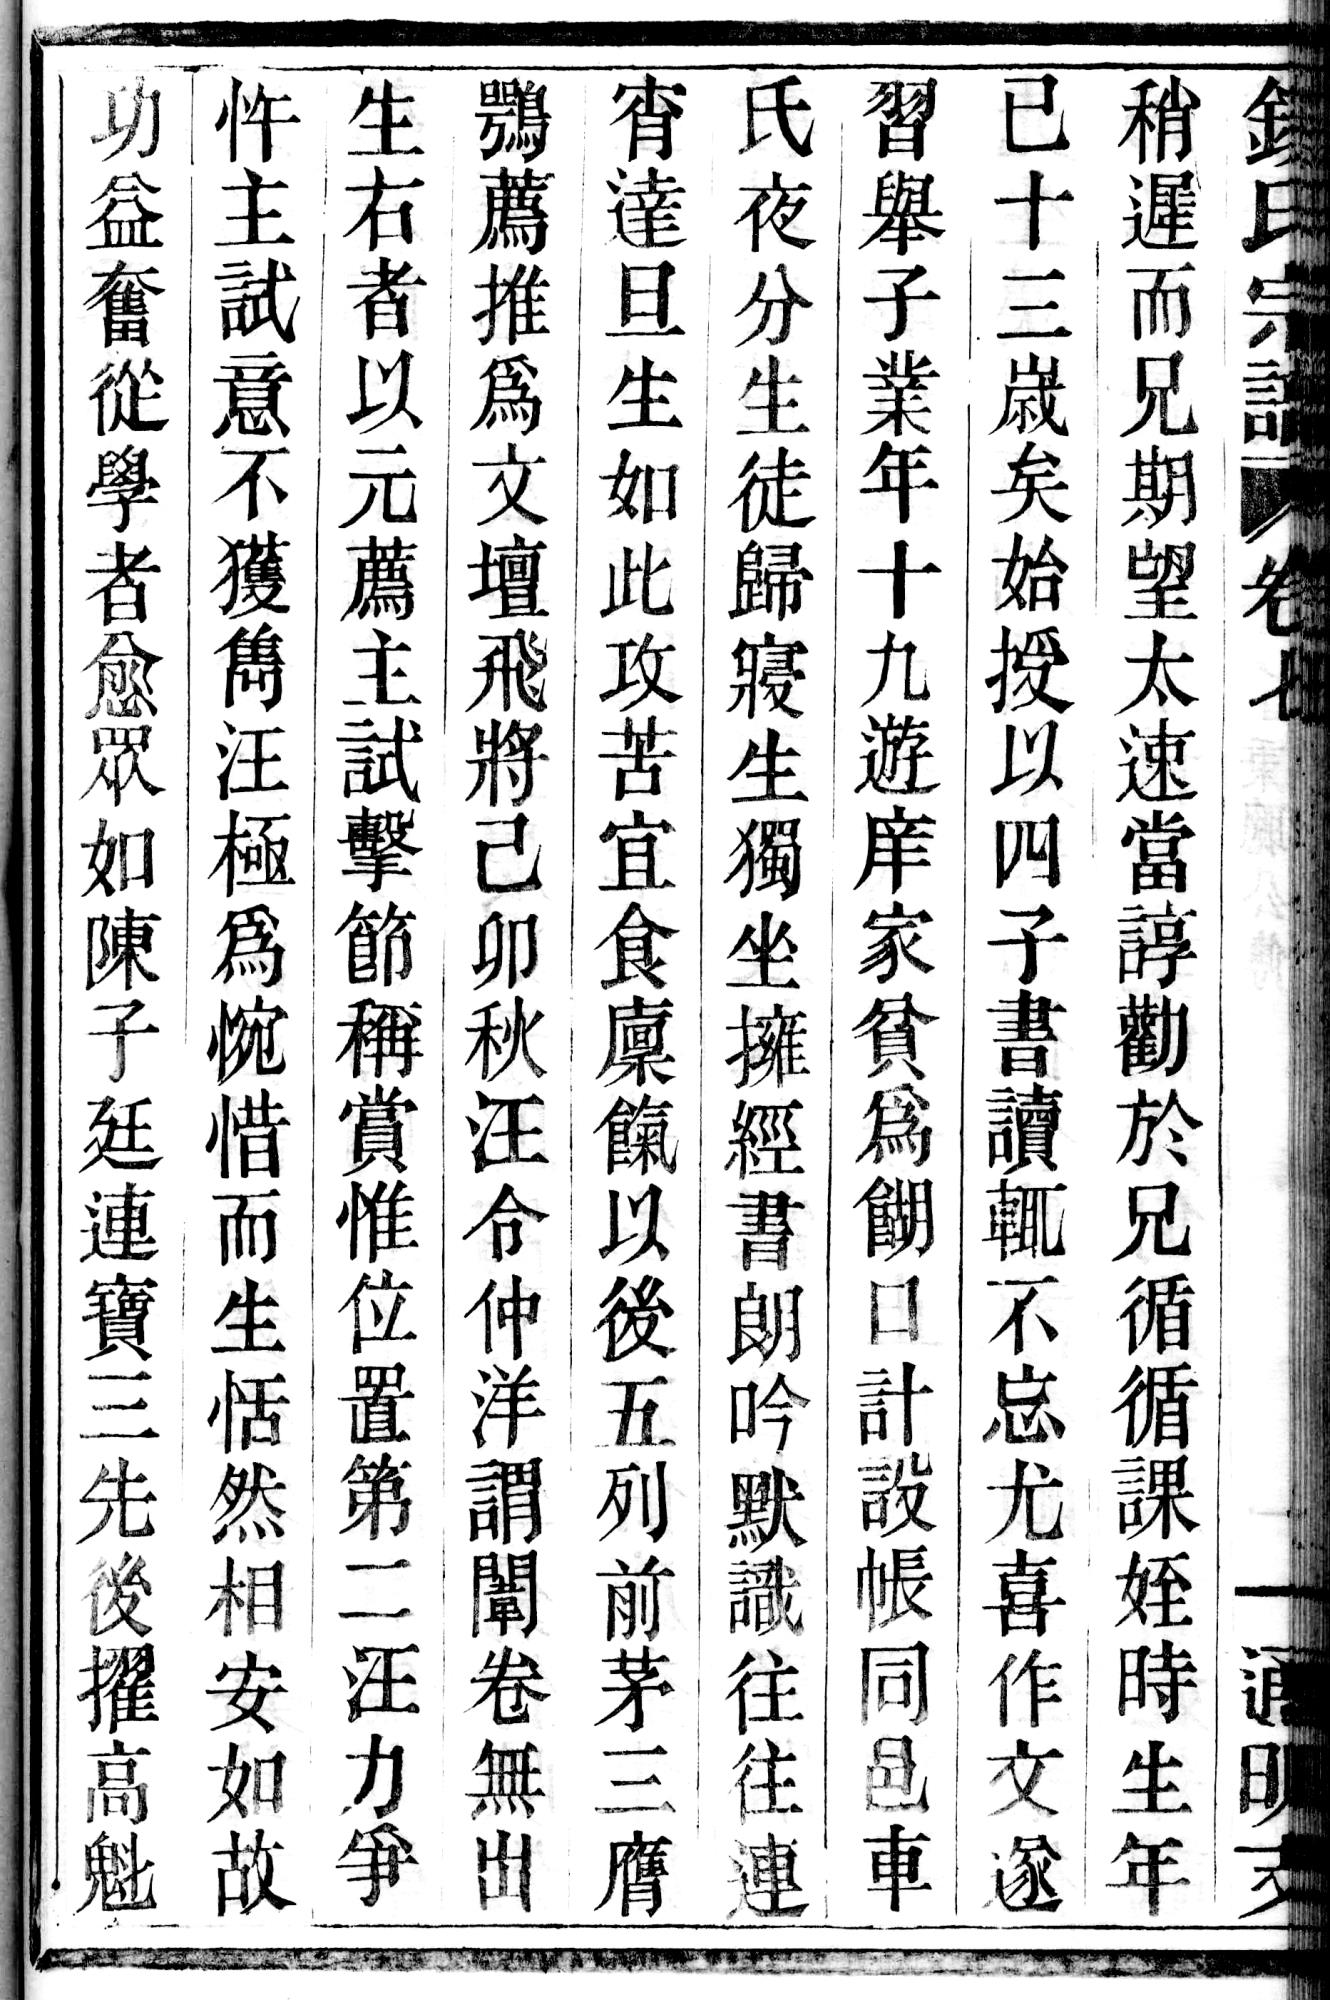 氏宗譜 卷七 一 通明支
稍遲而兄期望太速當諄勸於兄循循課姪時生年
已十三歲矣始授以四子書讀輒不忘尤喜作文遂
習舉子業年十九遊庠家貧爲餬口計設帳同邑車
氏夜分生徒歸寢生獨坐擁經書朗吟默識往往連
宵達旦生如此攻苦宜食廩餼以後五列前茅三膺
鶚薦推爲文壇飛將己卯秋汪令仲洋謂闈卷無出
生右者以元薦主試擊節稱賞惟位置第二汪力爭
忤主試意不獲雋汪極爲惋惜而生恬然相安如故
功益奮從學者愈眾如陳子廷連寶三先後擢高魁